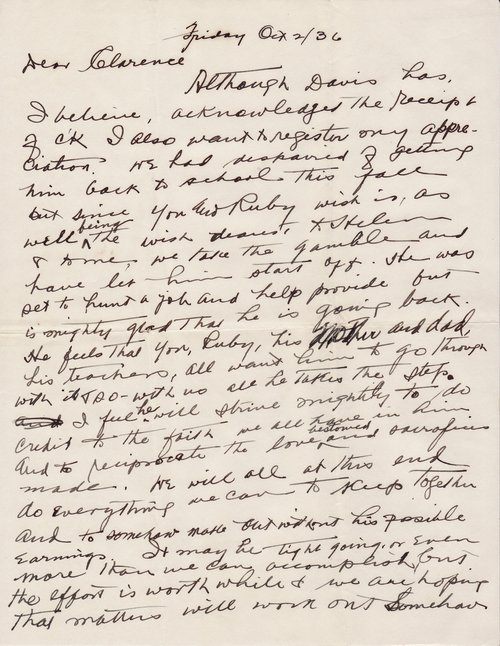 Friday Oct 2/36
Dear Clarence
Although Davis has,
I believe, acknowledged the receipt
of ck I also want to register my appre-
ciation. We had despaired of getting
him back to school this fall
but since You and Ruby wish is, as
well being the wish dearest to Helen
& to me, we take the gamble and
have let him start off. He was
set to hunt a job and help provide but
is mighty glad that he is going back.
He feels that You, Ruby, his Mother and dad,
his teachers, all want him to go through
with it & so with us all he takes the step.
and I feel he will strive mightly to do
credit to the faith we all have in him
And to reciprocate the love bestowed and sacrifices
made. We will all at this end
do everything we can to keep together
And to somehow make out without his possible
earnings. It may be tight going, or even
more than we can accomplish, but
the effort is worth while & we are hoping
that matters will work out Somehow